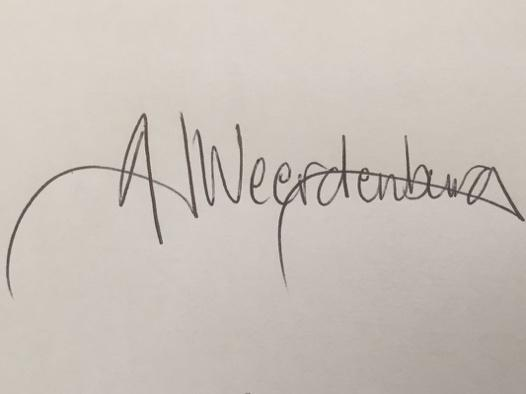 A Weerdenburg